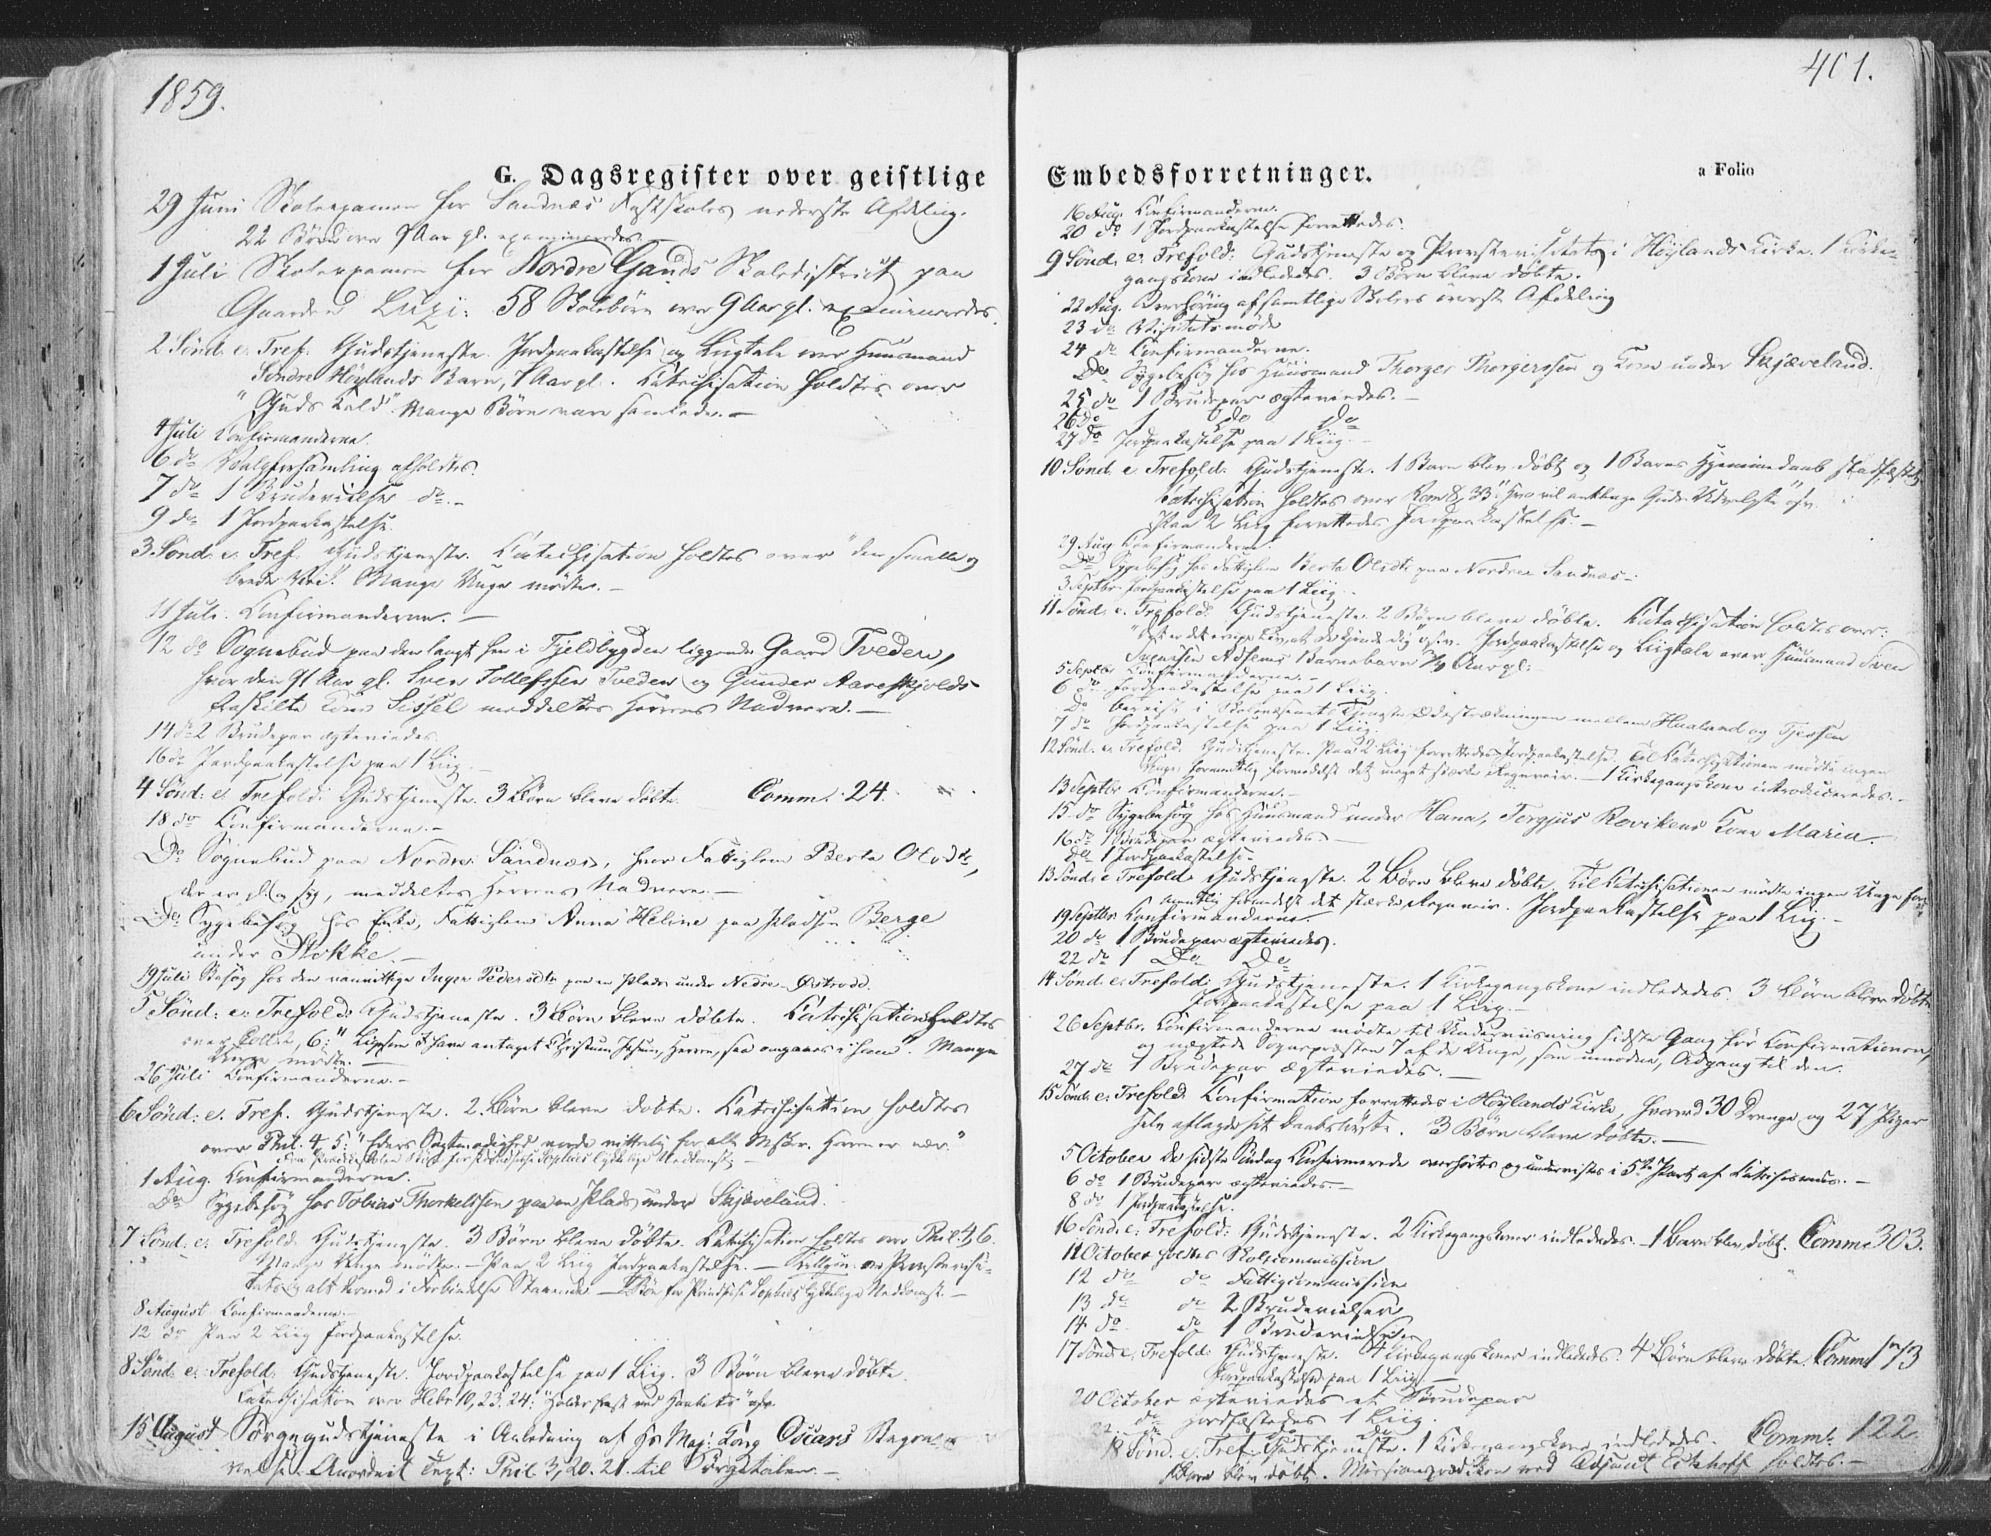 1859.
G. Dagsregister over geistlige
29 Juni Skoleexamen for Sandnæs Fastskoles nederste Afdeling.
22 Børn over 7 Aar gl. examineredes.
1 Juli Skoleexamen for Nordre Gands Skoledistrict paa
Gaarden Luzi: 58 Skolebørn over 9 Aar gl. examineredes.
2 Sønd. e. Tref. Gudstjeneste. Jordpaakastelse og Liigtale over Huusmand
Søndre Høylands Barn, 7 Aar gl. Catechisation holdtes over
"Guds Kald". Mange Børn vare samlede. —
4 Juli Confirmanderne.
6 do Valgforsamling afholdtes.
7 do 1 Brudevielse do. —
9 do 1 Jordpaakastelse.
3. Sønd. e. Tref. Gudstjeneste. Catechisation holdtes over "den smalle og
brede Vei". Mange Unge mødte. —
11 Juli. Confirmanderne. —
12 do Sognebud paa den langt hen i Fjeldbygden liggende Gaard Tveden,
hvor den 91 Aar gl. Sven Tollefssen Tveden og Gunder Aareskjolds
fraskilte Kone Sissel meddeltes Herrens Nadvere. —
14 do 2 Brudepar ægteviedes.
16 do Jordpaakastelse paa 1 Liig. —
4 Sønd: e. Trefold: Gudstjeneste. 3 Børn bleve døbte. Comm. 24.
18 do Confirmanderne. —
Do Sognebud paa Nordre Sandnæs, hvor Fattiglem Berta Olsdtr,
der er gl. og syg, meddeltes Herrens Nadvere. —
Do Sygebesøg hos Enke, Fattiglem Anna Heline paa Pladsen Berge
under Stokke. —
19 Juli Besøg hos den vanvittige Inger Pedersdtr paa en Plads under Nedre
5 Sønd: e. Trefold: Gudstjeneste. 3 Børn bleve døbte. Catechisation holdtes
over Coll. 2, 6: "Ligesom I have antaget Christum Jesum, Herren, saa omgaaes i ham". Mange
Unge mødte. —
26 Juli Confirmanderne. —
6 Sønd: e. Tref. Gudstjeneste. 2 Børn bleve døbte. Catechisation holdtes
over Phil. 4, 5: "Eders Sagtmodighed vorde vitterlig for alle Msker. Herren er nær."
Fra Prædikestolen Bøn for Prindsesse Sophies lykkelige Nedkomst. —
1 Aug. Confirmanderne.
Do Sygebesøg hos Tobias Thorkelssen paa en Plads under Skjæveland.
7 Sønd: e. Trefold. Gudstjeneste. 3 Børn bleve døbte. Catechisation holdtes over Phil. 4, 6.
Mange Unge mødte. — Paa 2 Liig Jordpaakastelse. — om Provstevisi-
tats og alt hermed i Forbindelse Staaende — Bøn for Prindsesse Sophies lykkelige Nedkomst. —
8 August Confirmanderne. —
12 do Paa 2 Liig Jordpaakastelse.
8 Sønd. e. Trefold: Gudstjeneste. Jordpaakastelse paa 1 Liig. 3 Børn bleve døbte.
Catechisation over Hebr 10, 23. 24: "Holder fast ved Haabets" osv.
15 August Sørgegudstjeneste i Anledning af Hs Maj: Kong Oscars Begra-
velse. Anordnet Text: Phil. 3, 20. 21. til Sørgetalen. —
401.
Embedsforretninger.
a Folio
16 Aug. Confirmanderne.
20 do 1 Jordpaakastelse forrettedes.
9 Sønd. e. Trefold: Gudstjeneste og Provstevisitats i Høylands Kirke. 1 Kirke-
gangskone indledes. 3 Børn bleve døbte.
22 Aug. Overhøring af samtlige Skolers øverste Afdeling
23 do Visitatsmøde
24 do Confirmanderne.
Do Sygebesøg hos Huusmand Thorger Thorgerssen og Kone under Skjæveland.
25 do 1 Brudepar ægteviedes. —
26 do 1 do do
27 do Jordpaakastelse paa 1 Liig. —
10. Sønd e Trefold. Gudstjeneste. 1 Barn blev døbt og 1 Barns Hjemmedaab stadfæstet.
Catechisation holdtes over Rom 8, 33: "Hvo vil anklage Guds Udvalgte" osv.
Paa 2 Liig forrettedes Jordpaakastelse. —
29 Aug. Confirmanderne.
Do Sygebesøg hos Fattiglem Berta Olsdtr paa Nordre Sandnæs. —
3 Septbr. Jordpaakastelse paa 1 Liig.
11 Sønd. e. Trefold. Gudstjeneste. 2 Børn bleve døbte. Catechisation holdtes over:
"Det er det evige Liv, at de kjende dig" osv. Jordpaakastelse og Liigtale over Huusmand Sven
Svensen Adsens Barnebarn Aar gl.
5 Septbr Confirmanderne. —
6 do Jordpaakastelse paa 1 Liig.
Do bereist i Skolevæsenets Tjeneste Udestrækningen mellem Hualand og Tjessem
7 do Jordpaakastelse paa 1 Liig.
12 Sønd. e. Trefold. Gudstjeneste. Paa 2 Liig forrettedes Jordpaakastelse. Til Catechisationen mødte ingen
Unge, formentlig formedelst det meget stærke Regnveir. — 1 Kirkegangskone introduceredes. —
13 Septbr Confirmanderne. —
15 do Sygebesøg hos Huusmand under Hana, Torgjus Rovikens Kone Maria.
16 do 1 Brudepar ægteviedes. —
do 1 Jordpaakastelse.
13 Sønd. e Trefold. Gudstjeneste. 2 Børn bleve døbte. Til Catechisationen mødte ingen Unge for-
mentlig formedelst det stærke Regnveir. Jordpaakastelse paa 1 Liig. —
19 Septbr. Confirmanderne.
20 do 1 Brudepar ægteviedes.
22 do 1 Do Do
14 Sønd. e. Trefold: Gudstjeneste. 1 Kirkegangskone indledes. 3 Børn bleve døbte
Jordpaakastelse paa 1 Liig. —
26 Septbr. Confirmanderne mødte til Underviisning sidste Gang før Confirmationen,
og nægtede Sognepræsten 7 af de Unge, som umodne, Adgang til den.
27 do 1 Brudepar ægteviedes. —
15 Sønd. e. Trefold. Confirmation forrettedes i Høylands Kirke, hvorved 30 Drenge og 27 Piger
selv aflagde sit Daabsløvte. 3 Børn bleve døbte. —
5 October De sidste Søndag Confirmerede overhørtes og underviistes i 5te Part af Catechismus. —
6 do 1 Brudepar ægteviedes. —
8 do 1 Jordpaakastelse.
16 Sønd. e. Trefold: Gudstjeneste. 2 Kirkegangskoner indledes. — 1 Barn blev døbt. Comm 303.
11 October holdtes Skolecommission
12 do do Fattigcommission
13 do do 2 Brudevielser
14 do do 1 Brudevielse
17 Sønd. e. Trefold: Gudstjeneste. 4 Kirkegangskoner indledes. 4 Børn bleve døbte. Comm 173
Jordpaakastelse paa 1 Liig. —
20 October ægteviedes et Brudepar
22 do jordfæstedes 1 Liig.
18 Sønd. e. Tref. Gudstjeneste. 1 Kirkegangskone indledes. Comm. 122.
1 Barn blev døbt. Missionsprædiken ved Adjunct Eckhoff holdtes. —